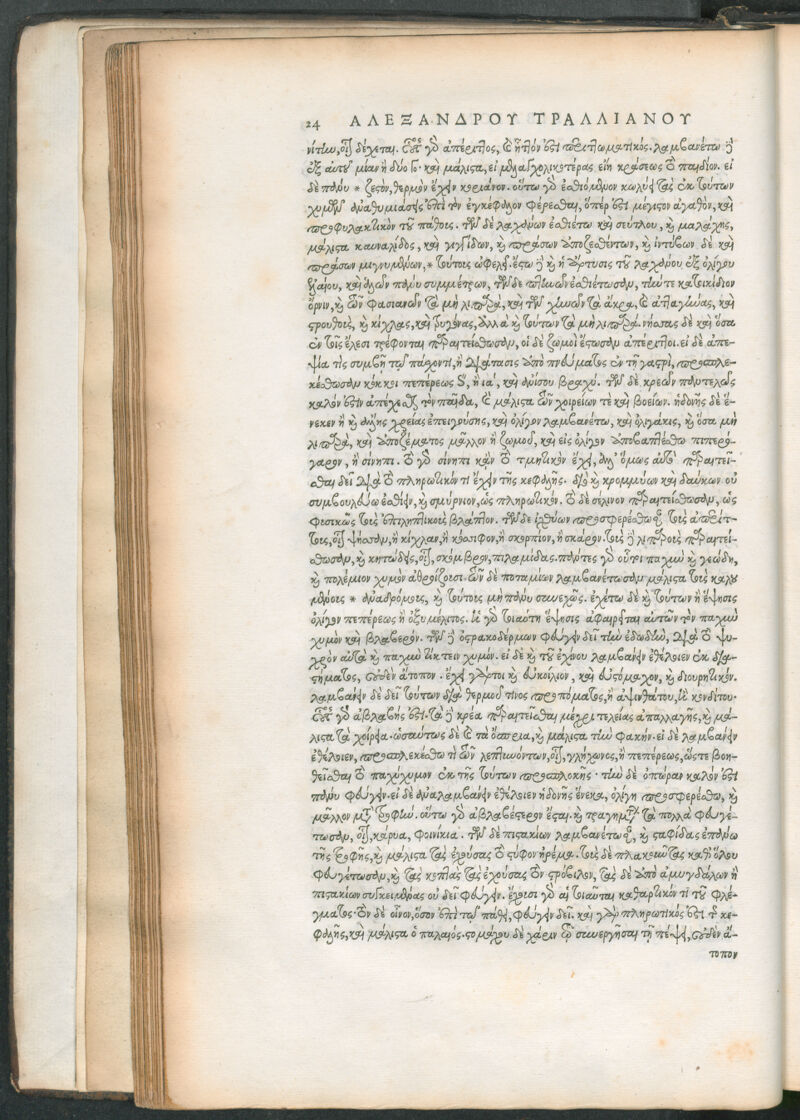 24 ΑΛΕΞΑΝΔΡΟΥ ΤΡΑΛΛΙΑΝΟΥ
δέχεται. ἀπέριττος, καὶ ἧττόν ἐστι περιττωματικός. λαμβανέτω δὲ
ἐξ αὐτοῦ μίαν ἢ δύο καὶ μάλιστα, εἰ μελαγχολικωτέρας εἴη κράσεως τὸ παιδίον. εἰ
δὲ πάνυ * ζεστὸν, θερμὸν ἔχειν κορίανον. οὕτω γὰρ ἐσθιόμενον κωλύει τὰς ἐκ τούτων
χυμῶν ἀναθυμιάσεις ἐπὶ τὸν ἐγκέφαλον φέρεσθαι, ὅπερ ἐστὶ μέγιστον ἀγαθὸν, καὶ
προφυλακτικὸν τοῦ πάθους. τῶν δὲ λαχάνων ἐσθιέτω καὶ σεύτλου, καὶ μαλάχης,
μάλιστα καυκαλίδος, καὶ γιγγίδων, καὶ πράσων ἀποζεσθέντων, καὶ ἰντύβων δὲ καὶ
πράσων μιγνυμένων, * τούτοις ὠφελεῖ. ἔστω δὲ καὶ ἡ ἄρτυσις τοῦ λαχάνου ἐξ ὀλίγου
ἐλαίου, καὶ ἁλῶν πάνυ συμμέτρων, τῶν δὲ πτηνῶν ἐσθιέτωσαν, τήν τε κατοικίδιον
ὄρνιν, καὶ τῶν φασιανῶν τὰ μὴ λιπαρὰ, καὶ τῶν χηνῶν τὰ ἄκρα, καὶ ἀτταγῆνας, καὶ
στρουθοὺς, καὶ κίχλας, καὶ ἀλλὰ καὶ τούτων τὰ μὴ λιπαρά. νήσσας δὲ καὶ ὅσα
ἐν τοῖς ἕλεσι τρέφονται παραιτείσθωσαν, οἱ δὲ ζωμοὶ ἔστωσαν ἀπέριττοι. εἰ δὲ ἀπε-
ψία τις συμβῇ τῷ πάσχοντι, ἢ διάτασις ὑπὸ πνεύματος ἐν τῇ γαστρὶ, προσπλε-
κέσθωσαν κόκκοι πεπέρεως καὶ ἀνίσου βραχύ. τῶν δὲ κρεῶν παντελῶς
καλόν ἐστιν ἀπέχεσθαι τὸν παῖδα, καὶ μάλιστα τῶν χοιρείων τε καὶ βοείων. ἡδονῆς δὲ ἕ-
νεκεν ἢ καὶ ἄλλης χρείας ἐπειγούσης, καὶ ὀλίγον λαμβανέτω, καὶ ὀλιγάκις, καὶ ὅσα μὴ
λιπαρὰ, καὶ ἀποζέματος μᾶλλον ἢ ζωμοῦ, καὶ εἰς ὀλίγον ἀποβαπτέσθω πιπερό-
γαρον, ἢ σίνηπι. τὸ γὰρ σίνηπι κἂν τὸ τμητικὸν ἔχῃ, ἀλλ' ὅμως αὐτὸ παραιτεῖ-
σθαι δεῖ διὰ τὸ πληρωτικόν τι ἔχειν τῆς κεφαλῆς. διὸ καὶ κρομμύων καὶ δαύκων οὐ
συμβουλεύω ἐσθίειν, καὶ σμύρνιον, ὡς πληρωτικόν. τὸ δὲ σέλινον παραιτείσθωσαν, ὡς
φυσικῶς τοὺς ἐπιληπτικοὺς βλάπτον. τῶν δὲ ἰχθύων προσφερέσθω τοὺς ἀπερίτ-
τους, οἷον ψήσσαν, ἢ κίχλαν, ἢ κόσσιφον, ἢ σκορπίον, ἢ σκάρον. τοὺς δὲ λιπαροὺς παραιτεί-
σθωσαν, καὶ κητώδεις, οἷον, σκόμβρον, πιλαμίδας. πάντες γὰρ οὗτοι παχὺν καὶ γεώδη,
καὶ πολέμιον χυμὸν ἀθροίζουσι. τῶν δὲ ποταμίων λαμβανέτωσαν μάλιστα τοὺς καλου
μένους * ἀναδρόμους, καὶ τούτοις μὴ πάνυ συνεχῶς. ἐχέτω δὲ καὶ τούτων ἡ ἕψησις
ὀλίγον πεπέρεως ἢ ὀξυμέλιτος. ἡ γὰρ τοιαύτη ἕψησις ἀφαιρεῖται αὐτῶν τὸν παχὺν
χυμὸν καὶ βλαβερόν. τῶν δὲ ὀστρακοδέρμων φεύγειν δεῖ τὴν ἐδωδὴν, διὰ τὸ ψυ-
χρὸν αὐτὰ καὶ παχὺν τίκτειν χυμόν. εἰ δὲ καὶ τοῦ ἐχίνου λαμβάνειν ἐθέλοιεν ἐκ δια-
στήματος, οὐδὲν ἄτοπον. ἔχει γάρ τι καὶ εὐκοίλιον, καὶ εὐστόμαχον, καὶ διουρητικόν.
λαμβάνειν δὲ δεῖ τούτων διὰ θερμοῦ τινος προπόματος, ἢ ἀψινθάτου, ἢ κονδίτου.
γὰρ ἀβλαβὴς ἐστί. τὰ δὲ κρέα παραιτεῖσθαι μέχρι τελείας ἀπαλλαγῆς, καὶ μά-
λιστα τὰ χοίρεια. ὡσαύτως δὲ καὶ τὰ ὄσπρια, καὶ μάλιστα τὴν φακῆν. εἰ δὲ λαμβάνειν
ἐθέλοιεν, προσπλεκέσθω τι τῶν λεπτυνόντων, οἷον, γλήχωνος, ἢ πεπέρεως, ὥστε βοη-
θεῖσθαι τὸ παχύχυμον ἐκ τῆς τούτων προσπλοκῆς. τὴν δὲ ὀπώραν καλόν ἐστι
πάνυ φεύγειν. εἰ δὲ ἀναλαμβάνειν ἐθέλοιεν ἡδονῆς ἕνεκα, ὀλίγη προσφερέσθω, καὶ
μᾶλλον μετὰ τροφήν. οὕτω γὰρ ἀβλαβέστερον ἔσται. καὶ τραγημάτων τὰ πολλὰ φευγέ-
τωσαν, οἷον, κάρυα, φοινίκια. τῶν δὲ πιστακίων λαμβανέτω, καὶ σταφίδας ἐπάνω
τῆς τροφῆς, καὶ μάλιστα τὰς ἐχούσας τὸ στύφον ἠρέμα. τοὺς δὲ πλακοῦντας καθόλου
φευγέτωσαν, καὶ τὰς κοπτὰς τὰς ἐχούσας τὸν στρόβιλον, τὰς δὲ ἀπὸ ἀμυγδάλων ἢ
πιστακίων συγκειμένας οὐ δεῖ φεύγειν. ἔχουσι γὰρ αἱ τοιαῦται καθαρτικόν τι τοῦ φλέ-
γματος. τὸν δὲ οἶνον, ὅσον ἐπὶ τῷ πάθει, φεύγειν δεῖ. καὶ γὰρ πληρωτικός ἐστι τῆς κε-
φαλῆς, καὶ μάλιστα ὁ παλαιός. στομάχου δὲ χάριν τοῦ συνεργῆσαι τῇ πέψει, οὐδὲν ἄ-
τοπον